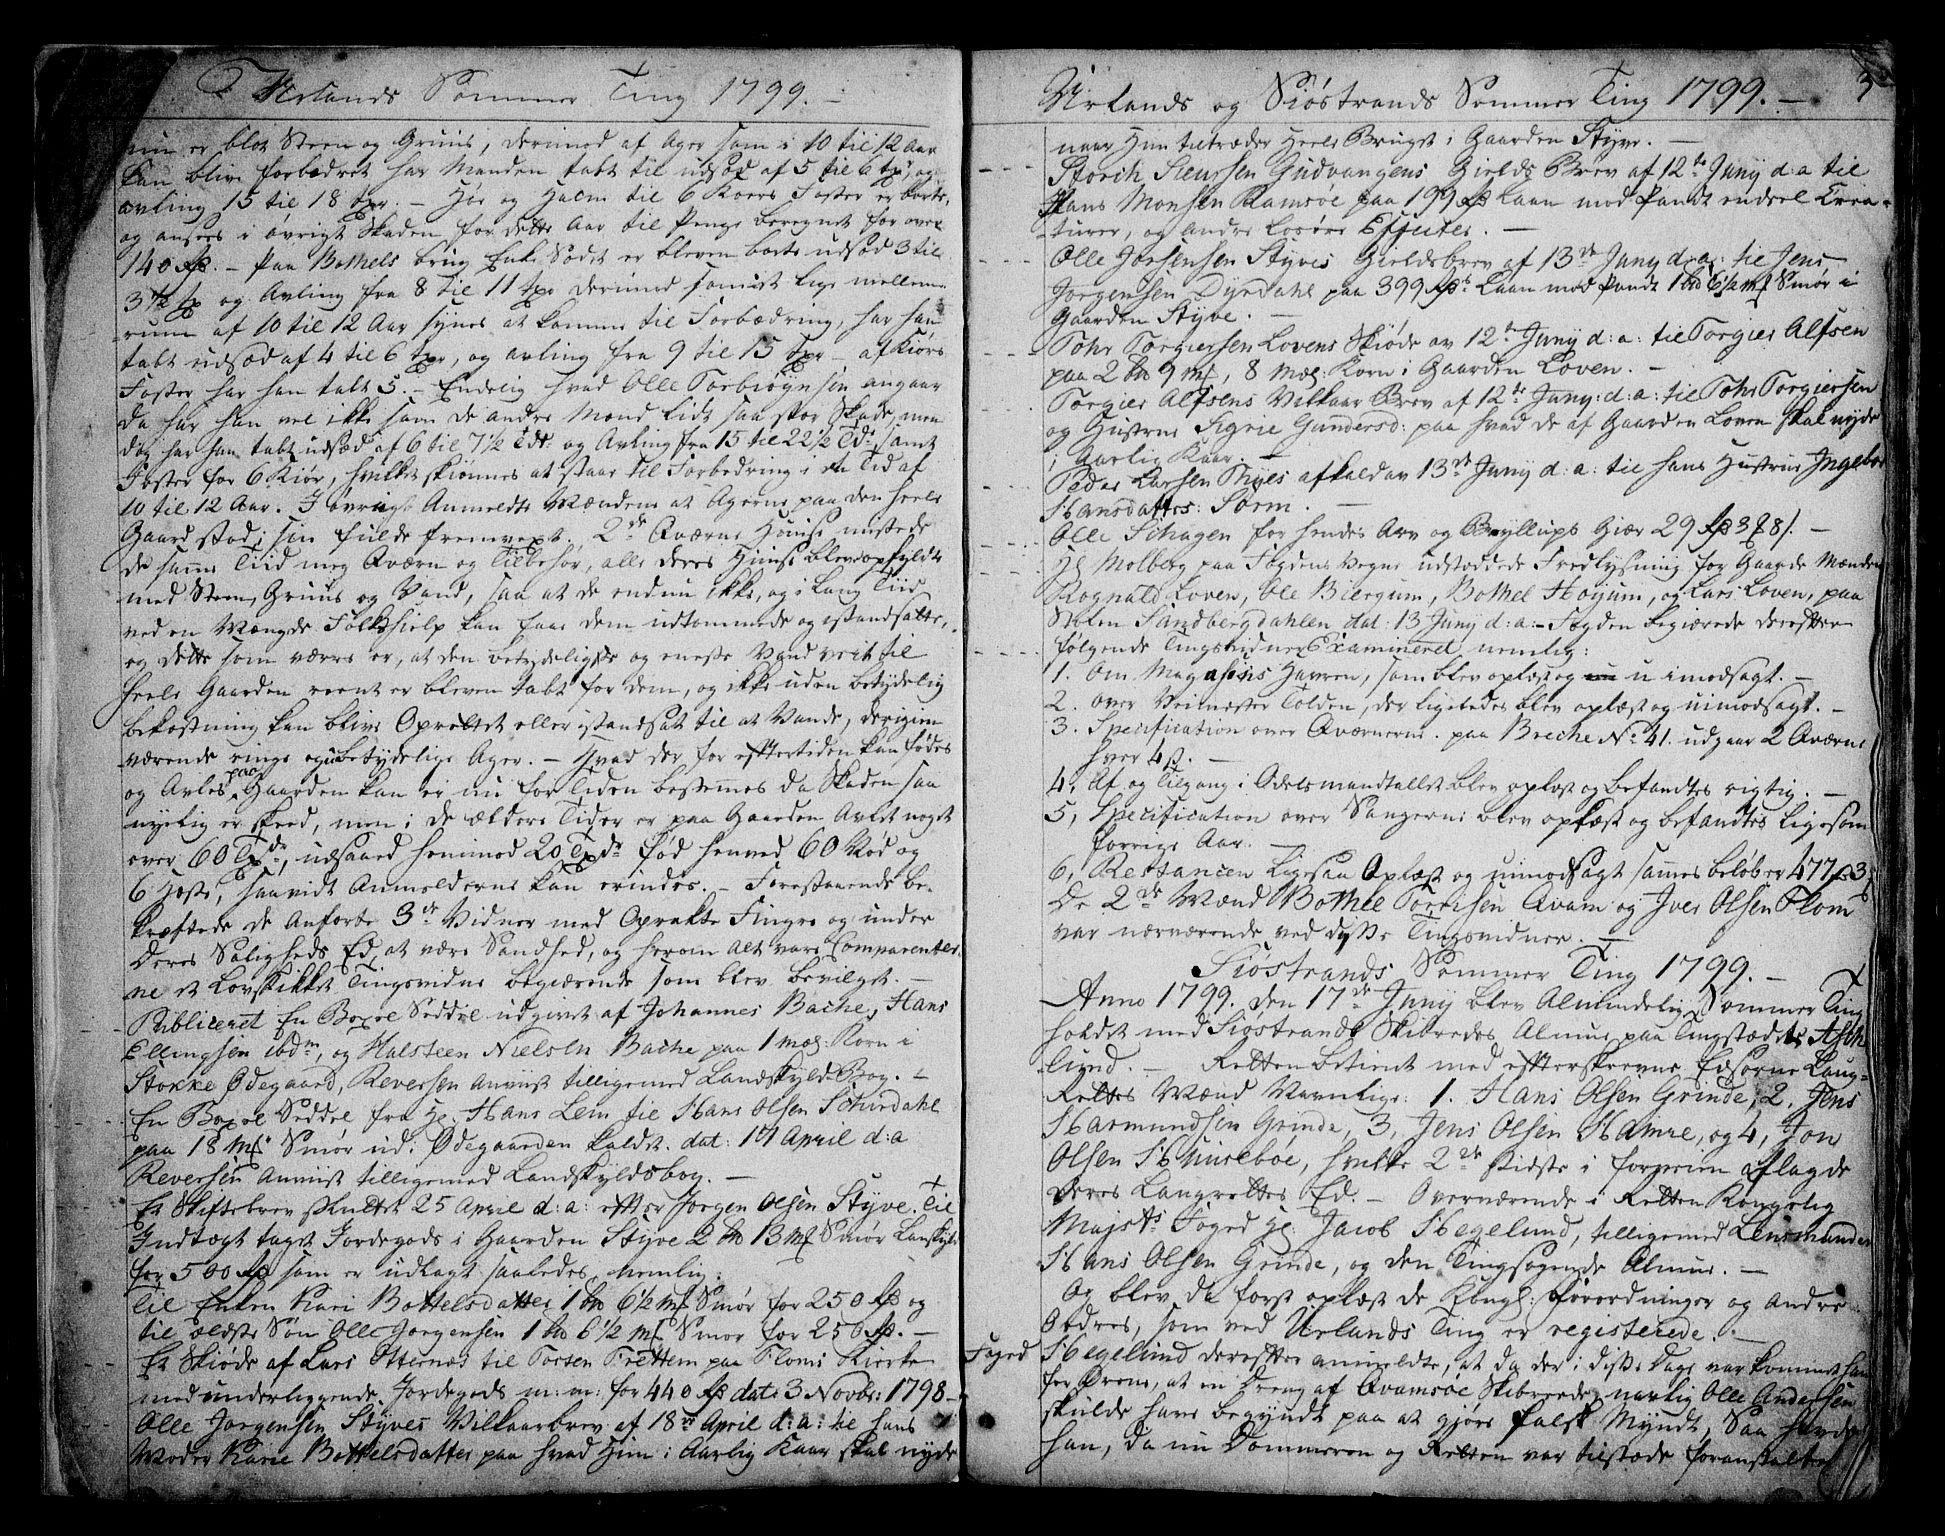 Urlands Sommer Ting 1799. –
nu er blot Steen og Gruus, derimod af Ager som i 10 til 12 Aar
kan blive forbedret har Manden tabt til udsæd af 5 til 6 tr, og
avling 15 til 18 tr. – Høe og Halm til 6 Kiørs Foster er borte,
og ansees i øvrigt Skaden for dette Aar til Penge beregnet for over
140 rd. – Paa Bothels brug Enke Sædet er bleven borte udsæd 3 til
3 1/2 tr og Avling fra 8 til 11 tr derimod samist lige mellem
rum af 10 til 12 Aar synes at komme til Forbædring, har han
tabt udsæd af 4 til 6 tr, og avling fra 9 til 15 tr – af Kiørs
Foster har han tabt 5. – Endelig hvad Olle Torbiøynsen angaar
da har han vel ikke som de andre Mænd lidt saa stor Skade, men
dog har han tabt udsæd af 6 til 7 1/2 Tdr og Avling fra 15 til 22 1/2 Tdr samt
Foster for 6 Kiør, hvilket skiønnes at staar til Forbedring i en Tid af
10 til 12 Aar. I øvrigt Anmeldte Mændene at Agerne paa den heele
Gaard stod i sin fulde fremvext. 2de Qværne Huuse mistede
de samme Tiid meg Qværn og Tilbehør, alle deres Huuse blev opfyldte
med Steen, Gruus og Vand, saa at de endnu ikke, og i Lang Tiid
ved en Mængde Folkehielp kan faae dem udtømmede og istandsatte,
og dette som værre er, at den betydeligste og eneste Vand veit til
heele Gaarden reent er bleven tabt for dem, og ikke uden betydelig
bekostning kan blive Oprettet eller istandsat til at Vande, derigiennem
værende ringe og ubetydelige Ager. – Hvad der for eftertiden kan fødes
og Avles paa Gaarden kan ei nu for Tiden bestemmes da Skaden saa
nyelig er skeed, men i de ældere Tider er paa Gaarden Avlet noget
over 60 Tr, udsaaed henimod 20 Tr fød henved 60 Nød og
6 Heste, saavidt Anmelderne kan erindre. – Forestaaende be-
kræftede de Anførte 3de Vidner med Oprakte Fingre og under
Deres Saligheds Ed, at være Sandhed, og herom Alt vare Comparenter
ne et Lovskikket Tingsvidne begiærende som blev bevilget. –
Publiceret En Bøxel Seddel udgivet af Johannes Bache, Hans
Ellingsen ibdm, og Halsteen Nielsen Bache paa 1 mæl: Korn i
Stokke Ødegaard, Reversen Anviist tilligemed Landskyld Bog. –
En Bøxel Seddel fra Hr Hans Lem til Hans Olsen Schirdahl
paa 18 mk Smør ud i Ødegaarden kaldet. dat: 17 April d:a
Reversen Anviist tilligemed Landskyldsbog. –
Et Skiftebrev sluttet 25 April d:a: efter Jørgen Olsen Styve. Til
Indtægt taget Jordegods i Gaarden Styve 2 bn 13 mk Smør Landskyld
for 500 rd som er udlagt saaledes nemlig:
Til Enken Kari Bottelsdatter 1 bn 6 1/2 mk Smør for 250 rd og
til ældste Søn Olle Jørgensen 1 bn 6 1/2 mk Smør for 250 rd. –
Et Skiøde af Lars Otternæs til Torsen Frettem paa Floms Kierke
med underliggende Jordegods m: m: for 440 rd dat: 3 Novbr: 1798 –
Olle Jørgensen Styves Vilkaarbrev af 18de April d:a: til hans
Moder Karie Bottelsdatter paa hvad Hun i Aarlig Kaar skal nyde
Urlands og Siøstrands Sommer Ting 1799. – 3
naar Hun tiltræder heele Bruget i Gaarden Styve. –
Storch Siursen Gudvangens Gields Brev af 12te Junij d:a til
Hans Monsen Ramsøe paa 199 rd Laan mod Pandt endeel Crea-
turer, og andre Løsøre Effecter. –
Olle Jørgensen Styves Gieldsbrev af 13de Junij d:a: til Jens
Jørgensen Dyrdahl paa 399 rd Laan mod Pandt 1 bn 6 1/2 mk Smør i
Gaarden Styve. –
Tohr Torgiersen Lovens Skiøde av 12te Junij d:a: til Torgier Alfsen
paa 2 bn 9 mk, 8 mæl: Korn i Gaarden Loven. –
Torgier Alfsens Vilkaar Brev af 12te Junij: d:a: til Tohr Torgiersen
og Hustrue Sigrie Gundersd: paa hvad de af Gaarden Loven skal nyde
i Aarlig Kaar. –
Peder Larsen Thyes afkald av 13de Junij d:a: til hans Hustrue Ingebor
Hansdatters: Form. –
Olle Schagen for hendes Arv og Bryllups Giær 29 rd 3 8 s. –
Hr Molberg paa Fogdens Vegne udstædde Fredlysning for Gaarde Mændene
Rognald Loven, Ole Biergum, Bothel Høyum, og Lars Loven, paa
Stølen Sandbergdahlen dat: 13 Junij d:a: – Fogden begiærede derefter
følgende Tingsvidner Examineret nemlig:
1. Om Magasins Havren, som blev oplæst og u imodsagt. –
2. over Veimester Tolden, der ligeledes blev oplæst og uimodsagt. –
3. Specification over Qværnerne. paa Breche No 41. udgaar 2 Qværne
hver 4 s. –
4, Af og Tilgang i Odelsmandtallet blev oplæst og befandtes rigtig. –
5, Specification over Saugerne blev oplæst og befandtes ligesom
forrige Aar. –
6, Restancen ligesaa Oplæst og uimodsagt sammes beløb er 477 rd 3
De 2de Mænd Bothel Torchsen Qvam og Iver Olsen Flom
var nærværende ved disse Tingsvidner. –
Siøstrands Sommer Ting 1799. –
Anno 1799. den 17de Junij blev Almindelig Sommer Ting
holdt med Siøstrands Skibredes Almue paa Tingstædet Ash-
lund. – Retten betient med efterskrevne Edsorne Laug-
Rettes Mænd Navnlige: 1. Hans Olsen Grinde, 2. Jens
Harmundsen Grinde, 3, Jens Olsen Hamre, og 4, Jon
Olsen Huusebøe, hvilke 2de sidste i forveien aflagde
deres Laugrettes Ed. – Overværende i Retten Kongelig
Majsts Foged Hr. Jacob Hegelund, tilligemed Lensmanden
Hans Olsen Grinde, og den Tingsøgende Almue. –
Og blev da først oplæst de Kongl: forordninger og andre
Ordres, som ved Urlands Ting er registerede. –
Foged Hegelund derefter anmeldte, at da der i disse Dage var kommet ham
for Ørene, at en Dreng af Qvamsøe Skibreede, navnlig Olle Andersen
skulde have begyndt paa at gjøre falsk Myndt, Saa havde
han, da nu Dommeren og Retten var tilstæde foranstaltet